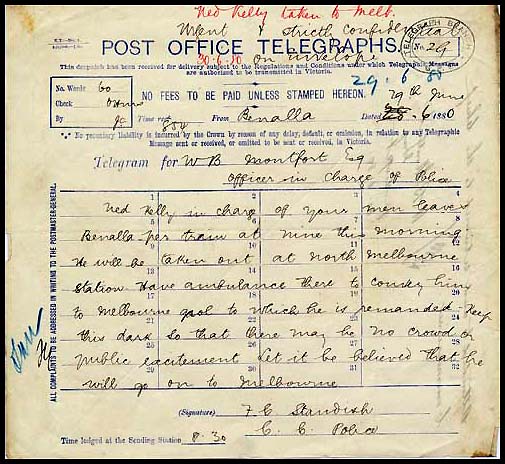 Ned Kelly taken to Melb.
Urgent & strictly confidential
POST OFFICE TELEGRAPHS.
30.6.80 on envelope
TELEGRAPH BRANCH
No. 29
This despatch has been received for delivery subject to the Regulations and Conditions under which Telegraphic Messages
are authorized to be transmitted in Victoria.
29.6.80
No. Words 60
Check
By
NO FEES TO BE PAID UNLESS STAMPED HEREON.
29th June
Time recd 854 From Benalla Dated 6/1880
*** No pecuniary liability is incurred by the Crown by reason of any delay, default, or omission, in relation to any Telegraphic
Message sent or received, or omitted to be sent or received, in Victoria.
Telegram for W B Montfort Esq
Officer in Charge of Police
1 2 3 4
Ned Kelly in charge of your men leaves
5 6 7 8
Benalla per train at nine this morning.
9 10 11 12
He will be taken out at North Melbourne
13 14 15 16
Station. Have ambulance there to convey him
17 18 19 20
to Melbourne gaol to which he is remanded - Keep
21 22 23 24
this dark so that there may be no crowd or
25 26 27 28
public excitement Let it be believed that he
29 30 31 32
will go on to Melbourne
(Signature) F C Standish
C. C. Police
Time lodged at the Sending Station 8.30
ALL COMPLAINTS TO BE ADDRESSED IN WRITING TO THE POSTMASTER-GENERAL.